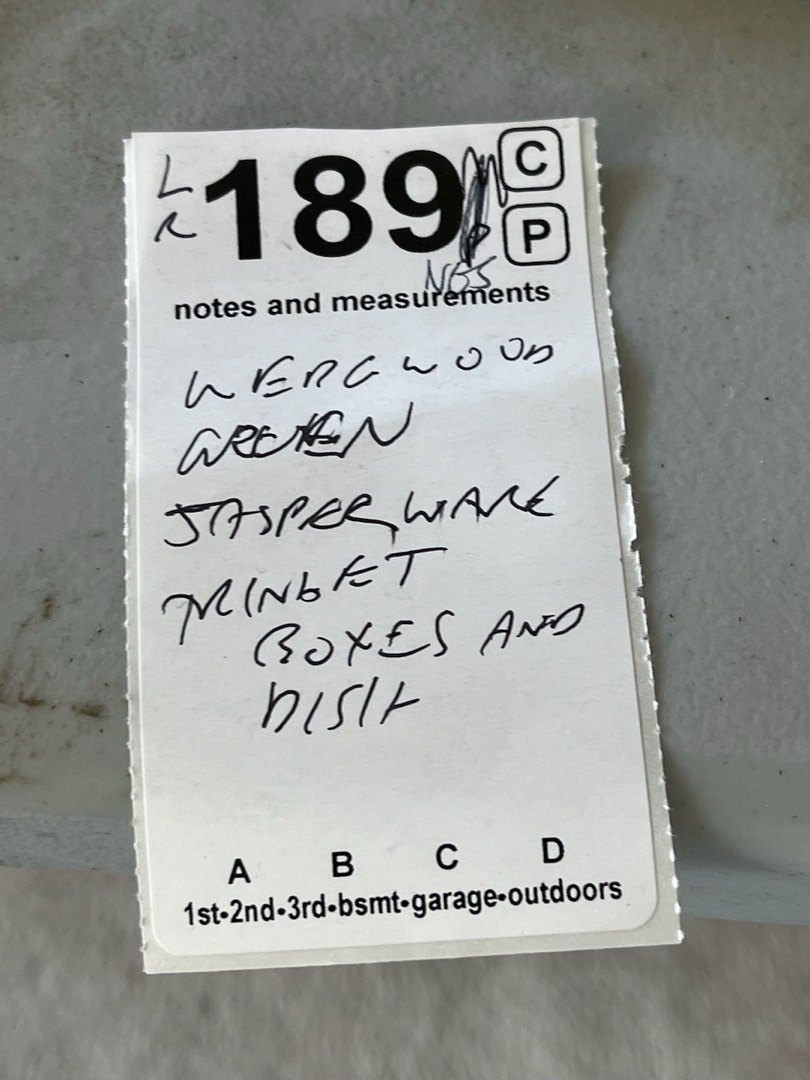 L
R
189
C
P
NBS
notes and measurements
WEDGWOOD
GREEN
JASPERWARE
TRINKET
BOXES AND
DISH
A B C D
1st•2nd•3rd•bsmt•garage•outdoors